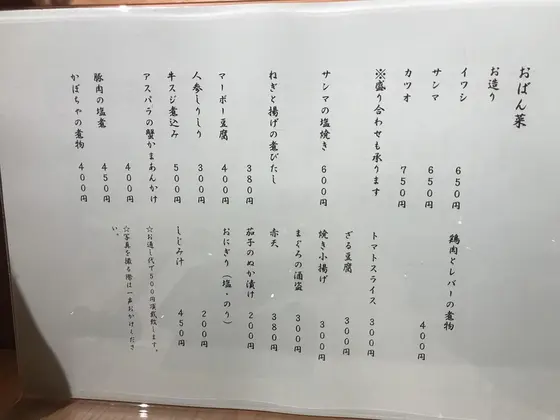 おばん菜
お造り
イワシ 650円
サンマ 650円
カツオ 750円
※盛り合わせも承ります
サンマの塩焼き 600円
ねぎと揚げの煮びたし
380円
マーボー豆腐 400円
人参しりしり 300円
牛スジ煮込み 500円
アスパラの蟹かまあんかけ
400円
豚肉の塩煮 450円
かぼちゃの煮物 400円
鶏肉とレバーの煮物
400円
トマトスライス 300円
ざる豆腐 300円
焼き小揚げ 300円
まぐろの酒盗 300円
赤天 380円
茄子のぬか漬け 200円
おにぎり（塩・のり）
200円
しじみ汁 450円
☆お通し代で500円頂戴致します。
☆写真を撮る際は一声おかけくださ
い。